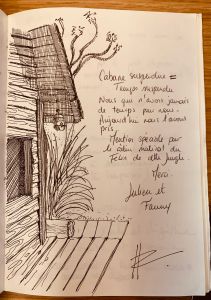 Cabane suspendue =
Temps suspendu
Nous qui n'avons jamais
de temps pour nous.
Aujourd'hui nous l'avons
pris.
Mention spéciale pour
le câlin matinal du
Félix de cette jungle.
Merci
Julien et
Fanny